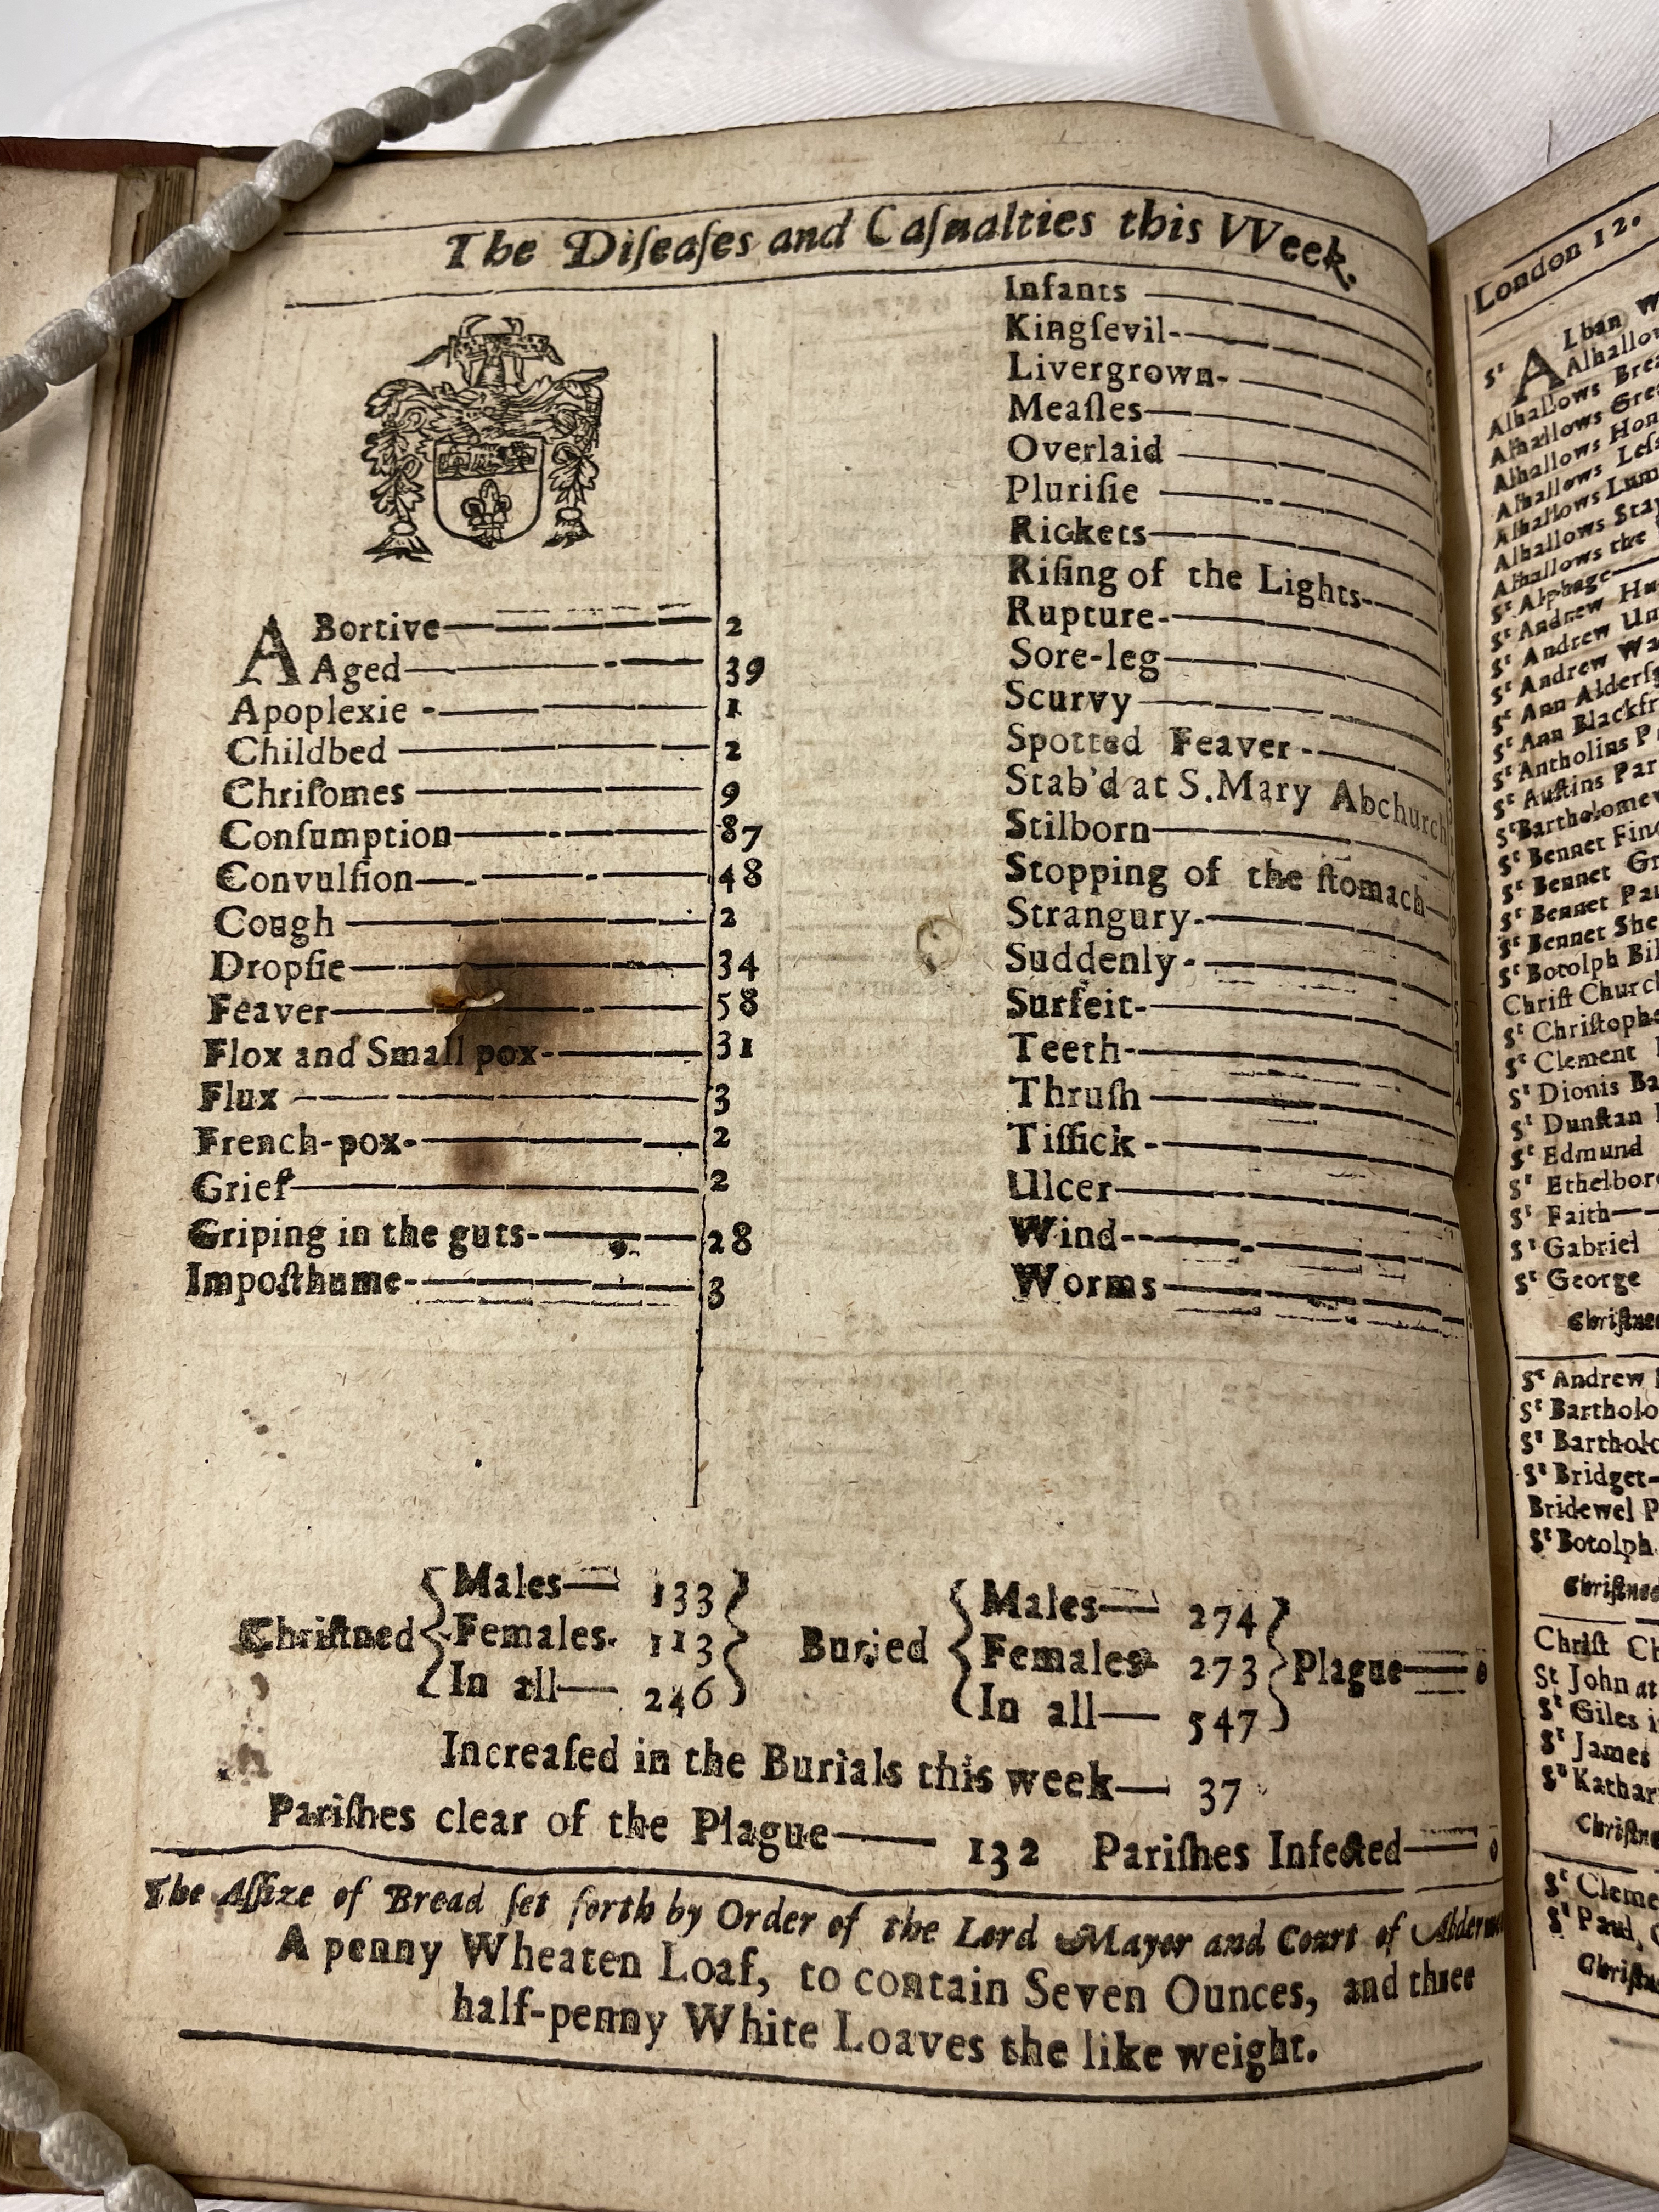 The Diſeaſes and Caſualties this VVeek.
ABortive 2
Aged 39
Apoplexie 1
Childbed 2
Chriſomes 9
Conſumption 87
Convulſion 48
Cough 2
Dropſie 34
Feaver 58
Flox and Small pox 31
Flux 3
French-pox 2
Grief 2
Griping in the guts 28
Impoſthume 3
Infants
Kingſevil
Livergrown
Meaſles
Overlaid
Pluriſie
Rickets
Riſing of the Lights
Rupture
Sore-leg
Scurvy
Spotted Feaver
Stab'd at S. Mary Abchurch
Stilborn
Stopping of the ſtomach
Strangury
Suddenly
Surfeit
Teeth
Thruſh
Tiſſick
Ulcer
Wind
Worms
Chriſtned
Males 133
Females 113
In all 246
Buried
Males 274
Females 273
In all 547
Plague 0
Increaſed in the Burials this week 37
Pariſhes clear of the Plague 132 Pariſhes Infected 0
The Aſſize of Bread ſet forth by Order of the Lord Mayor and Court of
A penny Wheaten Loaf, to contain Seven Ounces, and three
half-penny White Loaves the like weight.
London 12.
Sᵗ ALban
Alhallows
Alhallows
Alhallows
Alhallows
Alhallows
Alhallows
Alhallows
Alhallows the
Sᵗ Alphage
Sᵗ Andrew
Sᵗ Andrew
Sᵗ Andrew
Sᵗ Ann
Sᵗ Ann
Sᵗ Antholins
Sᵗ Auſtins
Sᵗ
Sᵗ Bennet
Sᵗ Bennet
Sᵗ Bennet
Sᵗ Bennet
Sᵗ Botolph
Chriſt Church
Sᵗ
Sᵗ Clement
Sᵗ Dionis
Sᵗ Dunſtan
Sᵗ Edmund
Sᵗ
Sᵗ Faith
Sᵗ Gabriel
Sᵗ George
Sᵗ Andrew
Sᵗ
Sᵗ
Sᵗ Bridget
Bridewel
Sᵗ Botolph
Chriſt
St John at
Sᵗ Giles
Sᵗ James
Sᵗ
Sᵗ
Sᵗ Paul,